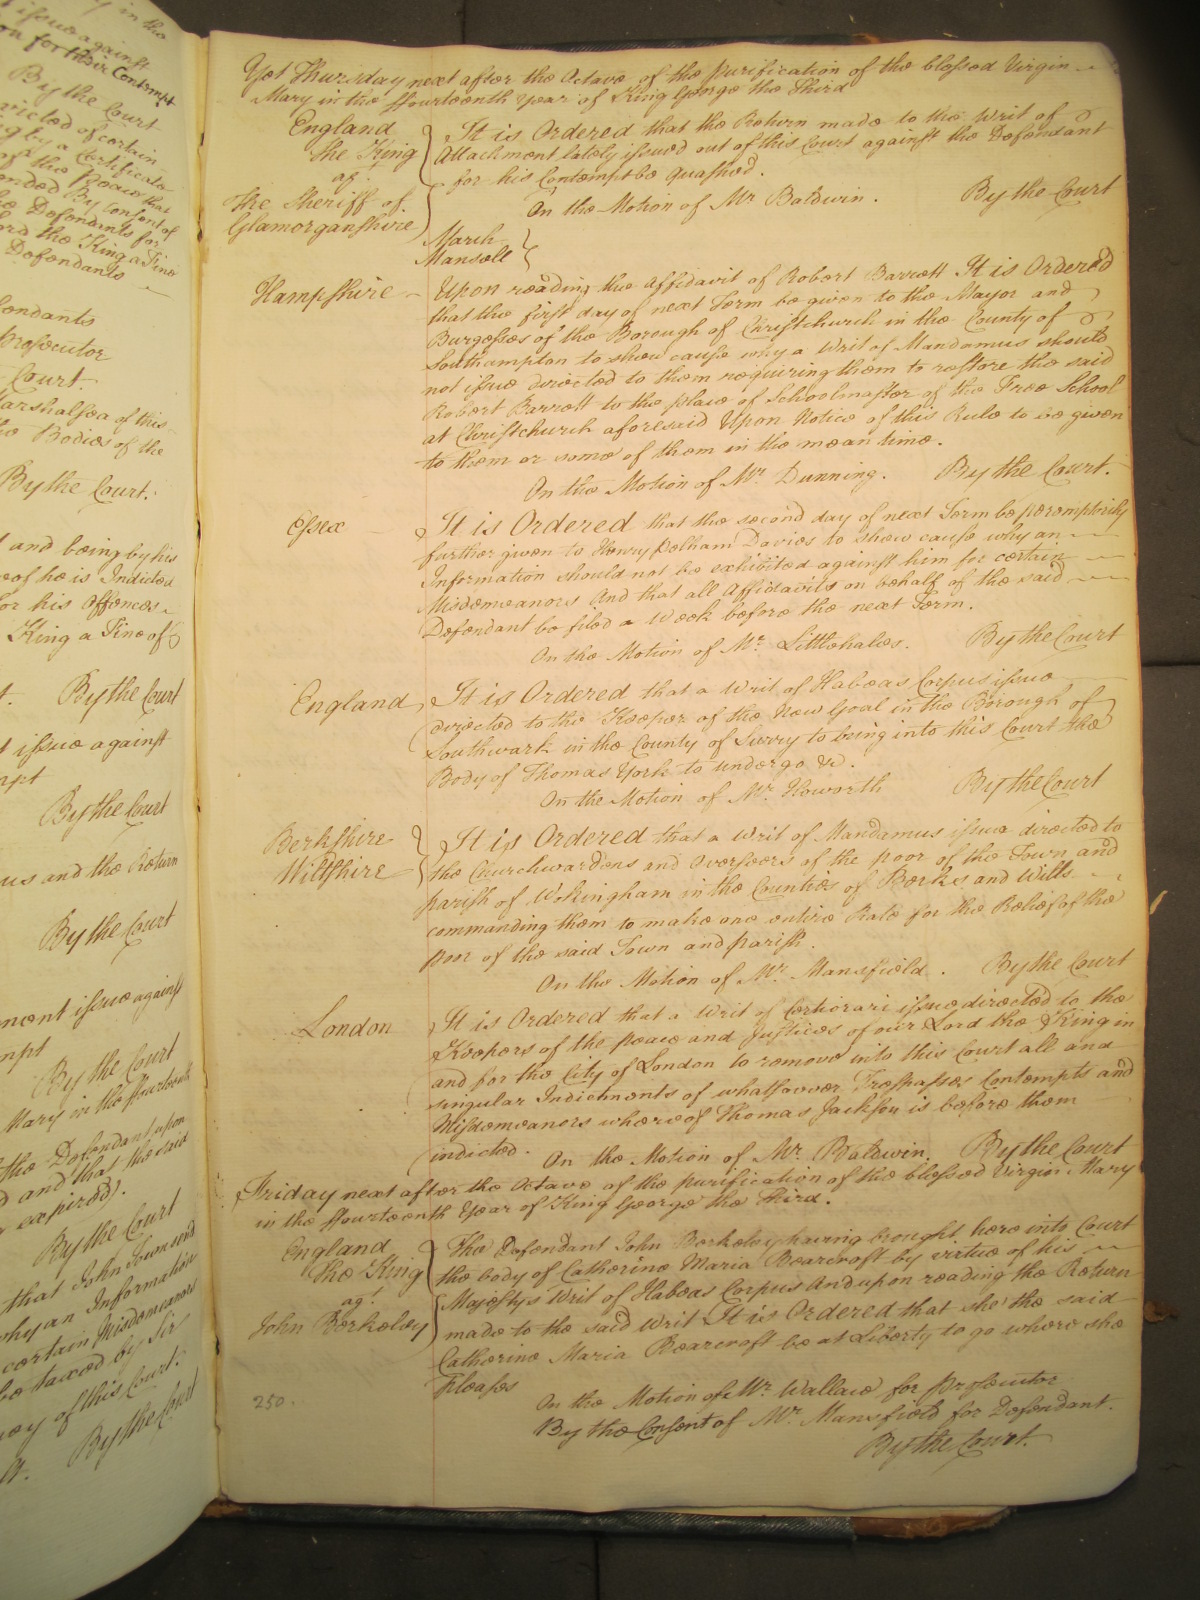 y in the
t issue against
on for their Contempt
By the Court
victed of certain
a Certificate
of the Peace that
ended By Consent of
he Defendants for
ord the King a Fine
Defendants
fendants
Prosecutor
Court.
Marshalsea of this
he Bodies of the
By the Court.
and being by his
eof he is Indicted
for his Offences
King a Fine of
By the Court
t issue against
mpt
By the Court
us and the Return
By the Court
ment issue against
mpt
By the Court
Mary in the fourteenth
the Defendant upon
d and that the said
expired).
By the Court
that John Townsend
why an Information
certain Misdemeanors
be taxed by Sir
ey of this Court.
By the Court
Yet Thursday next after the Octave of the purification of the blessed Virgin
Mary in the ffourteenth Year of King George the Third
England
The King
agt.
The Sheriff of
Glamorganshire
It is Ordered that the Return made to the Writ of
Attachment lately issued out of this Court against the Defendant
for his Contempt be quashed.
On the Motion of Mr Baldwin. By the Court
March
Mansell
Hampshire
Upon reading the Affidavit of Robert Barrett It is Ordered
that the first day of next Term be given to the Mayor and
Burgesses of the Borough of Christchurch in the County of
Southampton to shew cause why a Writ of Mandamus should
not issue directed to them requiring them to restore the said
Robert Barrett to the place of Schoolmaster of the Free School
at Christchurch aforesaid Upon Notice of this Rule to be given
to them or some of them in the mean time.
On the Motion of Mr. Dunning. By the Court.
Essex
It is Ordered that the second day of next Term be peremptorily
further given to Henry Pelham Davies to shew cause why an
Information should not be exhibited against him for certain
Misdemeanors And that all Affidavits on behalf of the said
Defendant be filed a Week before the next Term.
On the Motion of Mr. Littlehales. By the Court
England
It is Ordered that a Writ of Habeas Corpus issue
directed to the Keeper of the New Goal in the Borough of
Southwark in the County of Surry to bring into this Court the
Body of Thomas York to undergo &c.
On the Motion of Mr. Howorth By the Court
Berkshire
Wiltshire
It is Ordered that a Writ of Mandamus issue directed to
the Churchwardens and Overseers of the poor of the Town and
parish of Wokingham in the Counties of Berks and Wilts
commanding them to make one entire Rate for the Relief of the
poor of the said Town and parish.
On the Motion of Mr. Mansfield. By the Court
London
It is Ordered that a Writ of Certiorari issue directed to the
Keepers of the peace and Justices of our Lord the King in
and for the City of London to remove into this Court all and
singular Indictments of whatsoever Trespasses Contempts and
Misdemeanors whereof Thomas Jackson is before them
indicted. On the Motion of Mr. Baldwin. By the Court
Friday next after the Octave of the purification of the blessed Virgin Mary
in the ffourteenth Year of King George the Third.
England
The King
agt.
John Berkeley
The Defendant John Berkeley having brought here into Court
the body of Catherine Maria Bearcroft by virtue of his
Majestys Writ of Habeas Corpus And upon reading the Return
made to the said Writ It is Ordered that she the said
Catherine Maria Bearcroft be at Liberty to go where she
Pleases
On the Motion of Mr. Wallace for prosecutor
By the Consent of Mr. Mansfield for Defendant.
By the Court.
250.